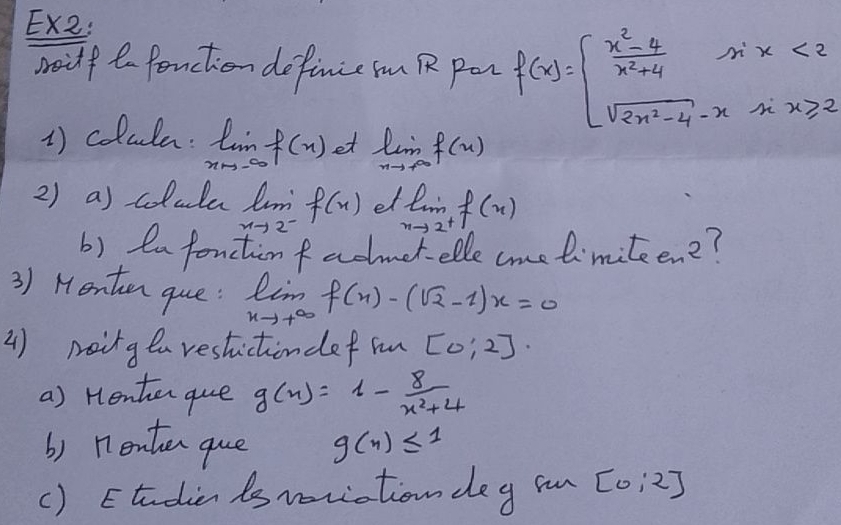 EX2:
soit f la fonction définie sur ℝ par f(x) = { (x²-4)/(x²+4) si x < 2
√(2x²-4) - x si x ≥ 2
1) calculer : lim f(x) et lim f(x)
x→-∞ x→+∞
2) a) calculer lim f(x) et lim f(x)
x→2⁻ x→2⁺
b) la fonction f admet-elle une limite en 2 ?
3) Montrer que : lim f(x) - (√2 - 1)x = 0
x→+∞
4) soit g la restriction de f sur [0;2].
a) Montrer que g(x) = 1 - 8/(x²+4)
b) Montrer que g(x) ≤ 1
c) Etudier les variations de g sur [0;2]